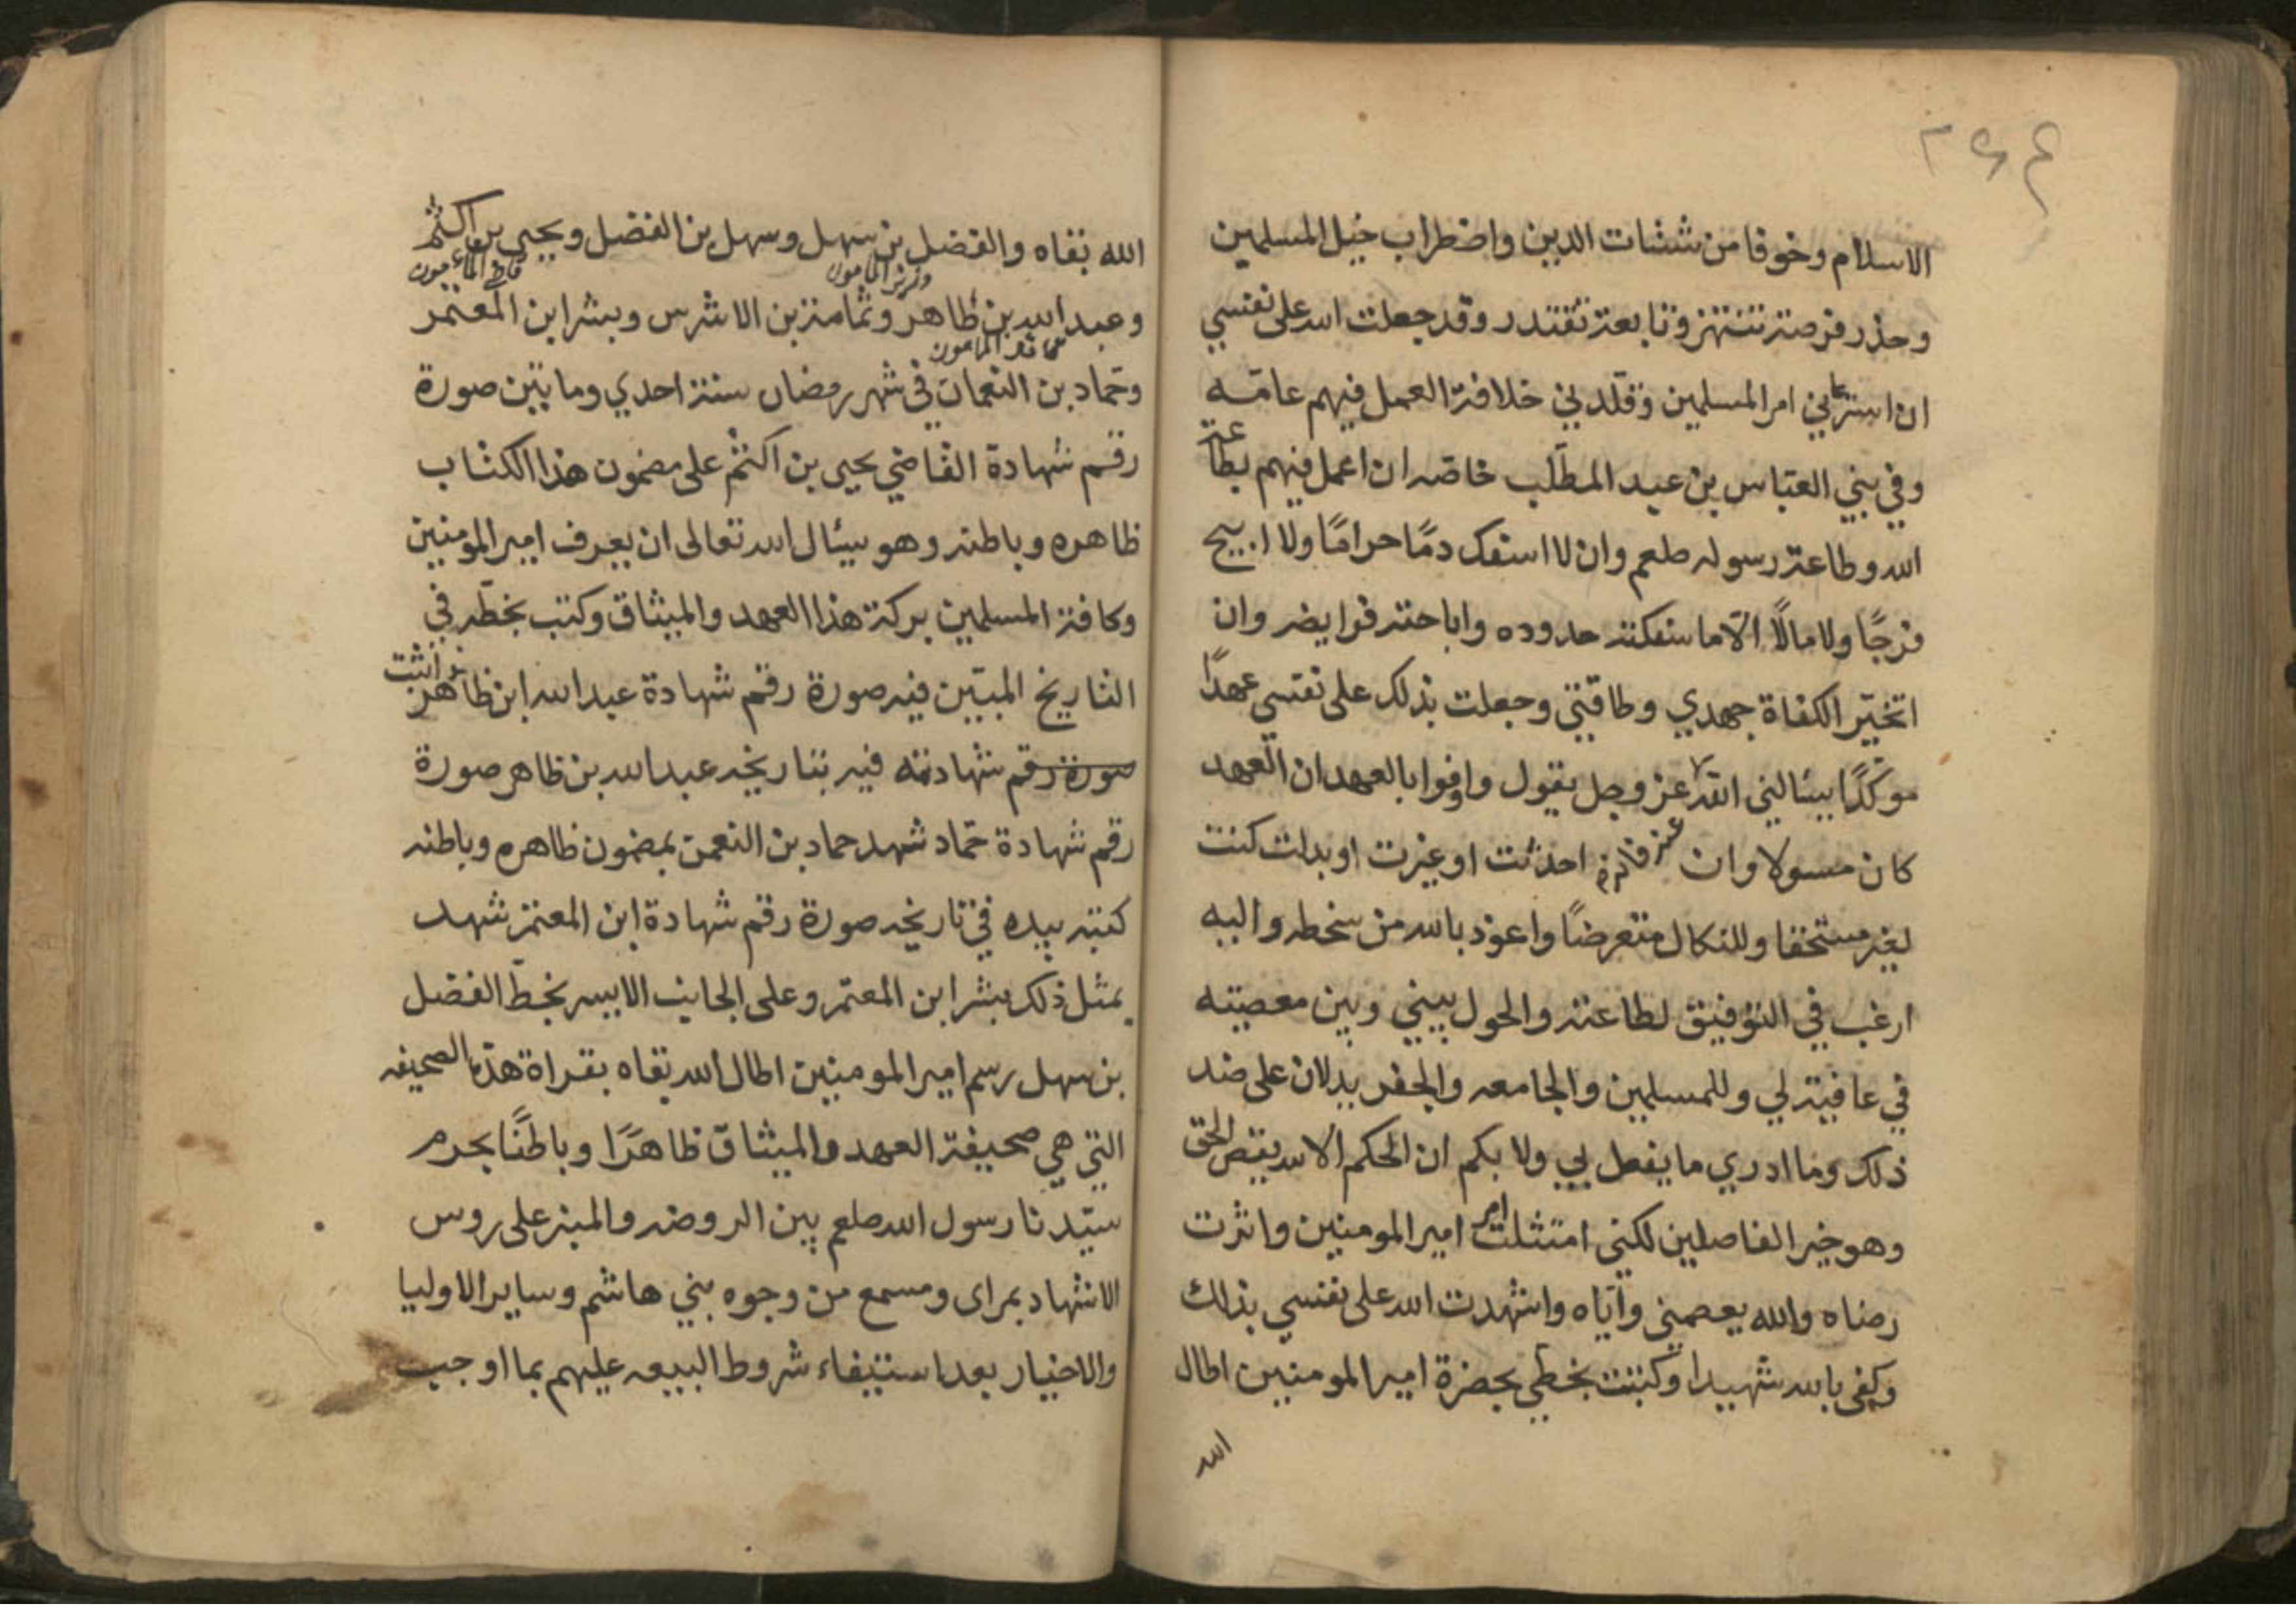 الاسلام وخوفا من شتات الدين واضطراب حبل المسلمين
وحذر فرصة تنتهز وتابعة تفتدر وقد جعلت الله على نفسي
ان استرعاني امر المسلمين وقلدني خلافة العمل فيهم عامّه
وفي بني العبّاس بن عبد المطلّب خاصّه ان اعمل فيهم بطاعة
الله وطاعة رسوله صلعم وان لا اسفك دمًا حرامًا ولا ابيح
فرجًا ولا مالًا الّا ما سفكته حدوده واباحته فرايضه وان
اتخيّر الكفاة جهدي وطاقتي وجعلت بذلك على نفسي عهدًا
موكّدًا يسئالني الله عز وجل يقول واوفوا بالعهد ان العهد
كان مسولا وان احدثت او غيرت او بدلت كنت
لغير مستحقا وللنكال متعرضًا واعوذ بالله من سخطه واليه
ارغب في التوفيق لطاعته والحول بيني وبين معصيته
في عافية لي وللمسلمين والجامعه والجفر يدلان على ضد
ذلك وما ادري ما يفعل بي ولا بكم ان الحكم الا لله يقص الحق
وهو خير الفاصلين لكني امتثلت امر امير المومنين واثرت
رضاه والله يعصمني وايّاه واشهدت الله على نفسي بذلك
وكفى بالله شهيدا وكتبت بخطي بحضرة امير المومنين اطال
الله
الله بقاه والفضل بن سهل وسهل بن الفضل ويحيى بن اكثم
وزير المامون قاضي المامون
وعبد الله بن طاهر وثمامة بن الاشرس وبشر ابن المعتمر
المامون
وحمّاد بن النعمان في شهر رمضان سنة احدي ومايتين صورة
رقم شهادة القاضي يحيى بن اكثم على مضمون هذا الكتاب
ظاهره وباطنه وهو يسئال الله تعالى ان يعرف امير المومنين
وكافة المسلمين بركة هذا العهد والميثاق وكتب بخطّه في
التاريخ المبيّن فيه صورة رقم شهادة عبد الله ابن طاهر اثبت
صورة رقم شهادته فيه بتاريخه عبد الله بن طاهر صورة
رقم شهادة حمّاد شهد حماد بن النعمن بمضمون ظاهره وباطنه
كتبه بيده في تاريخه صورة رقم شهادة ابن المعتمر شهد
بمثل ذلك بشر ابن المعتمر وعلى الجانب الايسر بخطّ الفضل
بن سهل رسم امير المومنين اطال الله بقاه بقراة هذه الصحيفه
التي هي صحيفة العهد والميثاق ظاهرًا وباطنًا بحرم
سيّدنا رسول الله صلعم بين الروضه والمنبر على روس
الاشهاد بمراى ومسمع من وجوه بني هاشم وساير الاوليا
والاخيار بعد استيفاء شروط البيعه عليهم بما اوجب